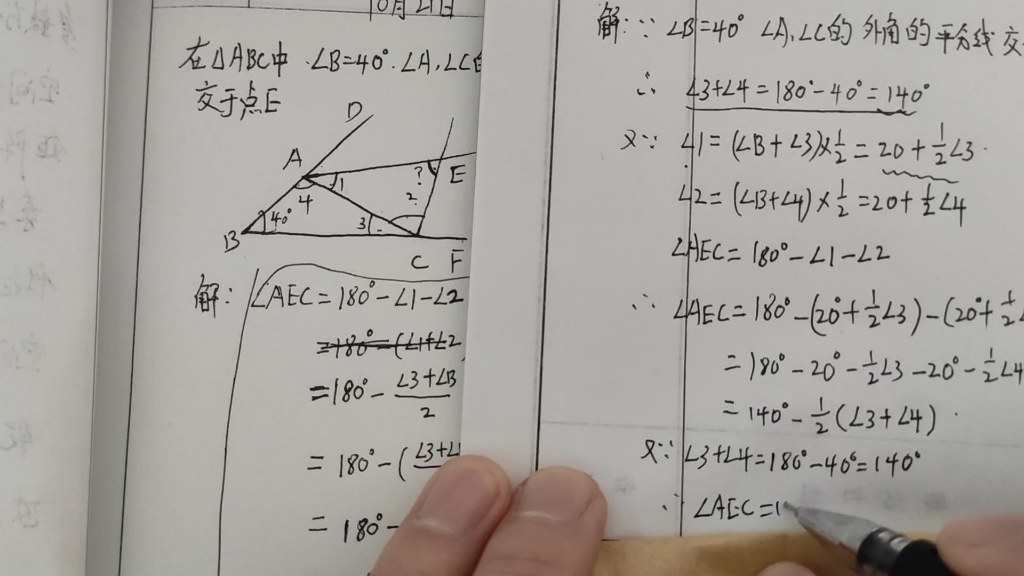 10月21日
在△ABC中.∠B=40°.∠A,∠C的
交于点E
D
A
1
?
E
2
4
40°
3
B
C F
解: ∠AEC=180°-∠1-∠2
=180°-(∠1+∠2
=180°-(∠3+∠B)/2
=180°-(
=180°-
解:∵ ∠B=40° ∠A,∠C的外角的平分线交
∴ ∠3+∠4=180°-40°=140°
又∵ ∠1=(∠B+∠3)×1/2=20+1/2∠3.
∠2=(∠B+∠4)×1/2=20+1/2∠4
∠AEC=180°-∠1-∠2
∴ ∠AEC=180°-(20°+1/2∠3)-(20°+1/2
=180°-20°-1/2∠3-20°-1/2∠4
=140°-1/2(∠3+∠4).
又∵ ∠3+∠4=180°-40°=140°
∴ ∠AEC=1